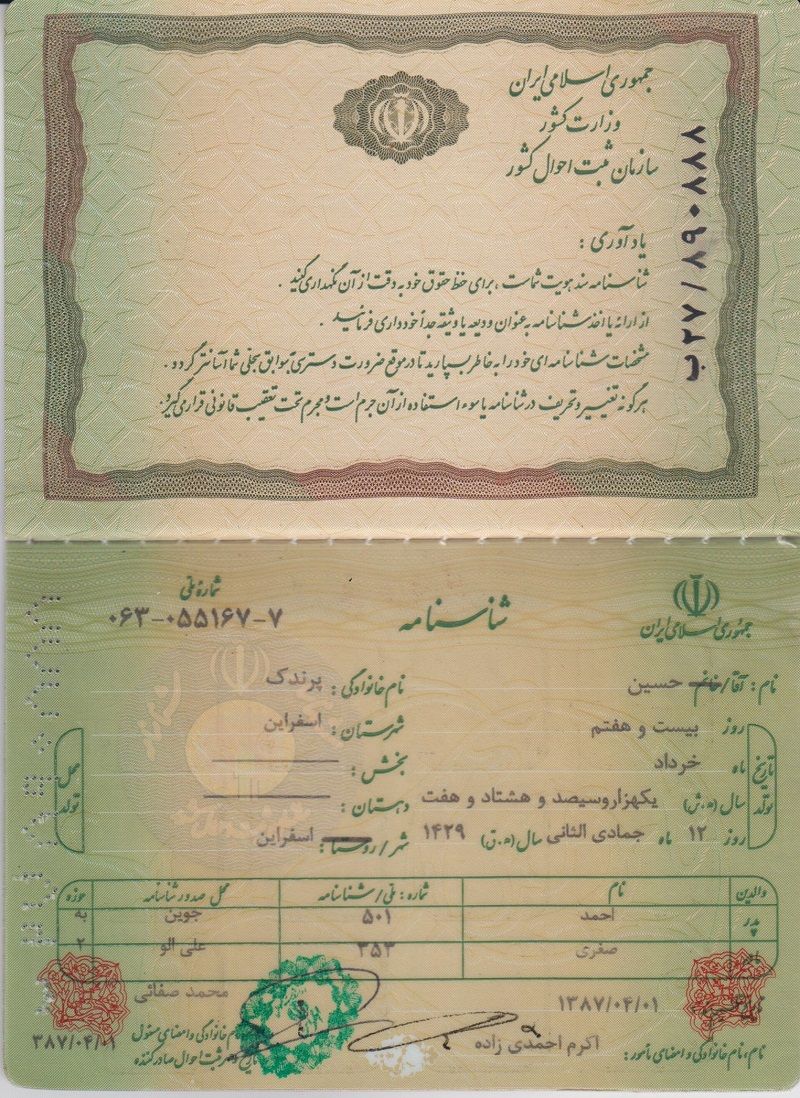 جمهوری اسلامی ایران
وزارت کشور
سازمان ثبت احوال کشور
ب۲۷/۸۹۰۸۸۸
یادآوری :
شناسنامه سند هویت شماست ، برای حفظ حقوق خود به دقت از آن نگهداری کنید .
از ارائه یا اخذ شناسنامه به عنوان ودیعه یا وثیقه جداً خودداری فرمائید .
مشخصات شناسنامه ای خود را به خاطر بسپارید تا در موقع ضرورت دسترسی به سوابق سجلی شما آسانتر گردد .
هرگونه تغییر و تحریف در شناسنامه یا سوء استفاده از آن جرم است و مجرم تحت تعقیب قانونی قرار می گیرد.
جمهوری اسلامی ایران
شناسنامه
شمارهٔ ملی
۰۶۳-۰۵۵۱۶۷-۷
نام : آقا/خانم حسین
نام خانوادگی : پرندک
تاریخ تولد
روز بیست و هفتم
ماه خرداد
سال (ه.ش) یکهزاروسیصد و هشتاد و هفت
روز ۱۲ ماه جمادی الثانی سال (ه.ق) ۱۴۲۹
محل تولد
شهرستان : اسفراین
بخش :
دهستان :
شهر/روستا : اسفراین
والدین نام شماره : ملی/شناسنامه محل صدور شناسنامه حوزه
پدر احمد ۵۰۱ جوین به
مادر صغری ۳۵۳ علی الو ۲
۱۳۸۷/۰۴/۰۱
محمد صفائی
نام، نام خانوادگی و امضای مأمور : اکرم احمدی زاده
نام خانوادگی و امضای مسئول
ثبت احوال صادرکننده
۳۸۷/۰۴/۰۱